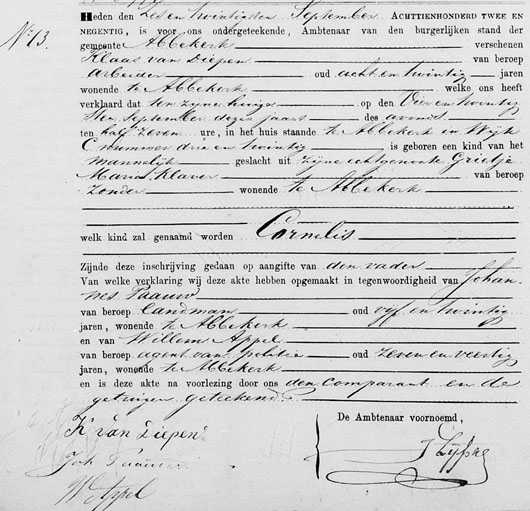 No. 13.
Heden den Zes en twintigsten September ACHTTIENHONDERD TWEE EN
NEGENTIG, is voor ons ondergeteekende, Ambtenaar van den burgerlijken stand der
gemeente Abbekerk verschenen
Klaas van Diepen van beroep
Arbeider oud acht en twintig jaren
wonende te Abbekerk welke ons heeft
verklaard dat ten zijnen huize op den Vier en twintig
sten September dezes jaars des avonds
ten half Zeven ure, in het huis staande te Abbekerk in Wijk
C nummer drie en twintig is geboren een kind van het
mannelijk geslacht uit zijne echtgenoote Grietje
Maria Klaver van beroep
Zonder wonende te Abbekerk
welk kind zal genaamd worden Cornelis
Zijnde deze inschrijving gedaan op aangifte van den vader
Van welke verklaring wij deze akte hebben opgemaakt in tegenwoordigheid van Johan
nes Paauw
van beroep landman oud vijf en twintig
jaren, wonende te Abbekerk
en van Willem Appel
van beroep agent van politie oud zeven en veertig
jaren, wonende te Abbekerk
en is deze akte na voorlezing door ons den comparant en de
getuigen geteekend.
De Ambtenaar voornoemd,
K van Diepen
Joh Paauw
W Appel